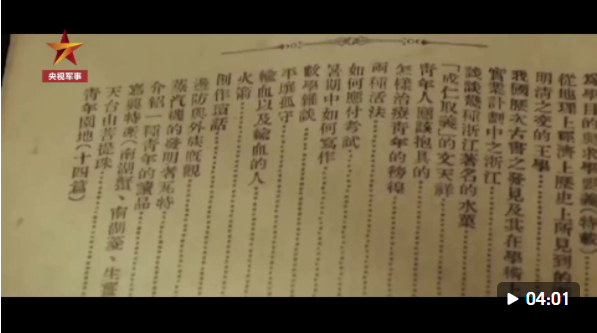 為學目的與求學要義(特載)
從地理上經濟上歷史上所見到的
明清之變的王學
我國歷次古書之發見及其在學術上
實業計劃中之浙江
談談幾種浙江著名的水菓
「成仁取義」的文天祥
青年人應該抱具的
怎樣治療青年的徬徨
兩種活法
如何應付考試
暑期中如何寫作
數學雜談
平壤孤守
輸血以及輸血的人
火箭
創作瑣話
邊防與外族概觀
蒸汽機的發明者瓦特
介紹一種青年的讀品
嘉興特產(南湖蟹、南湖菱、生薑
天台山菩提珠
青年園地(十四篇)
央视军事
04:01